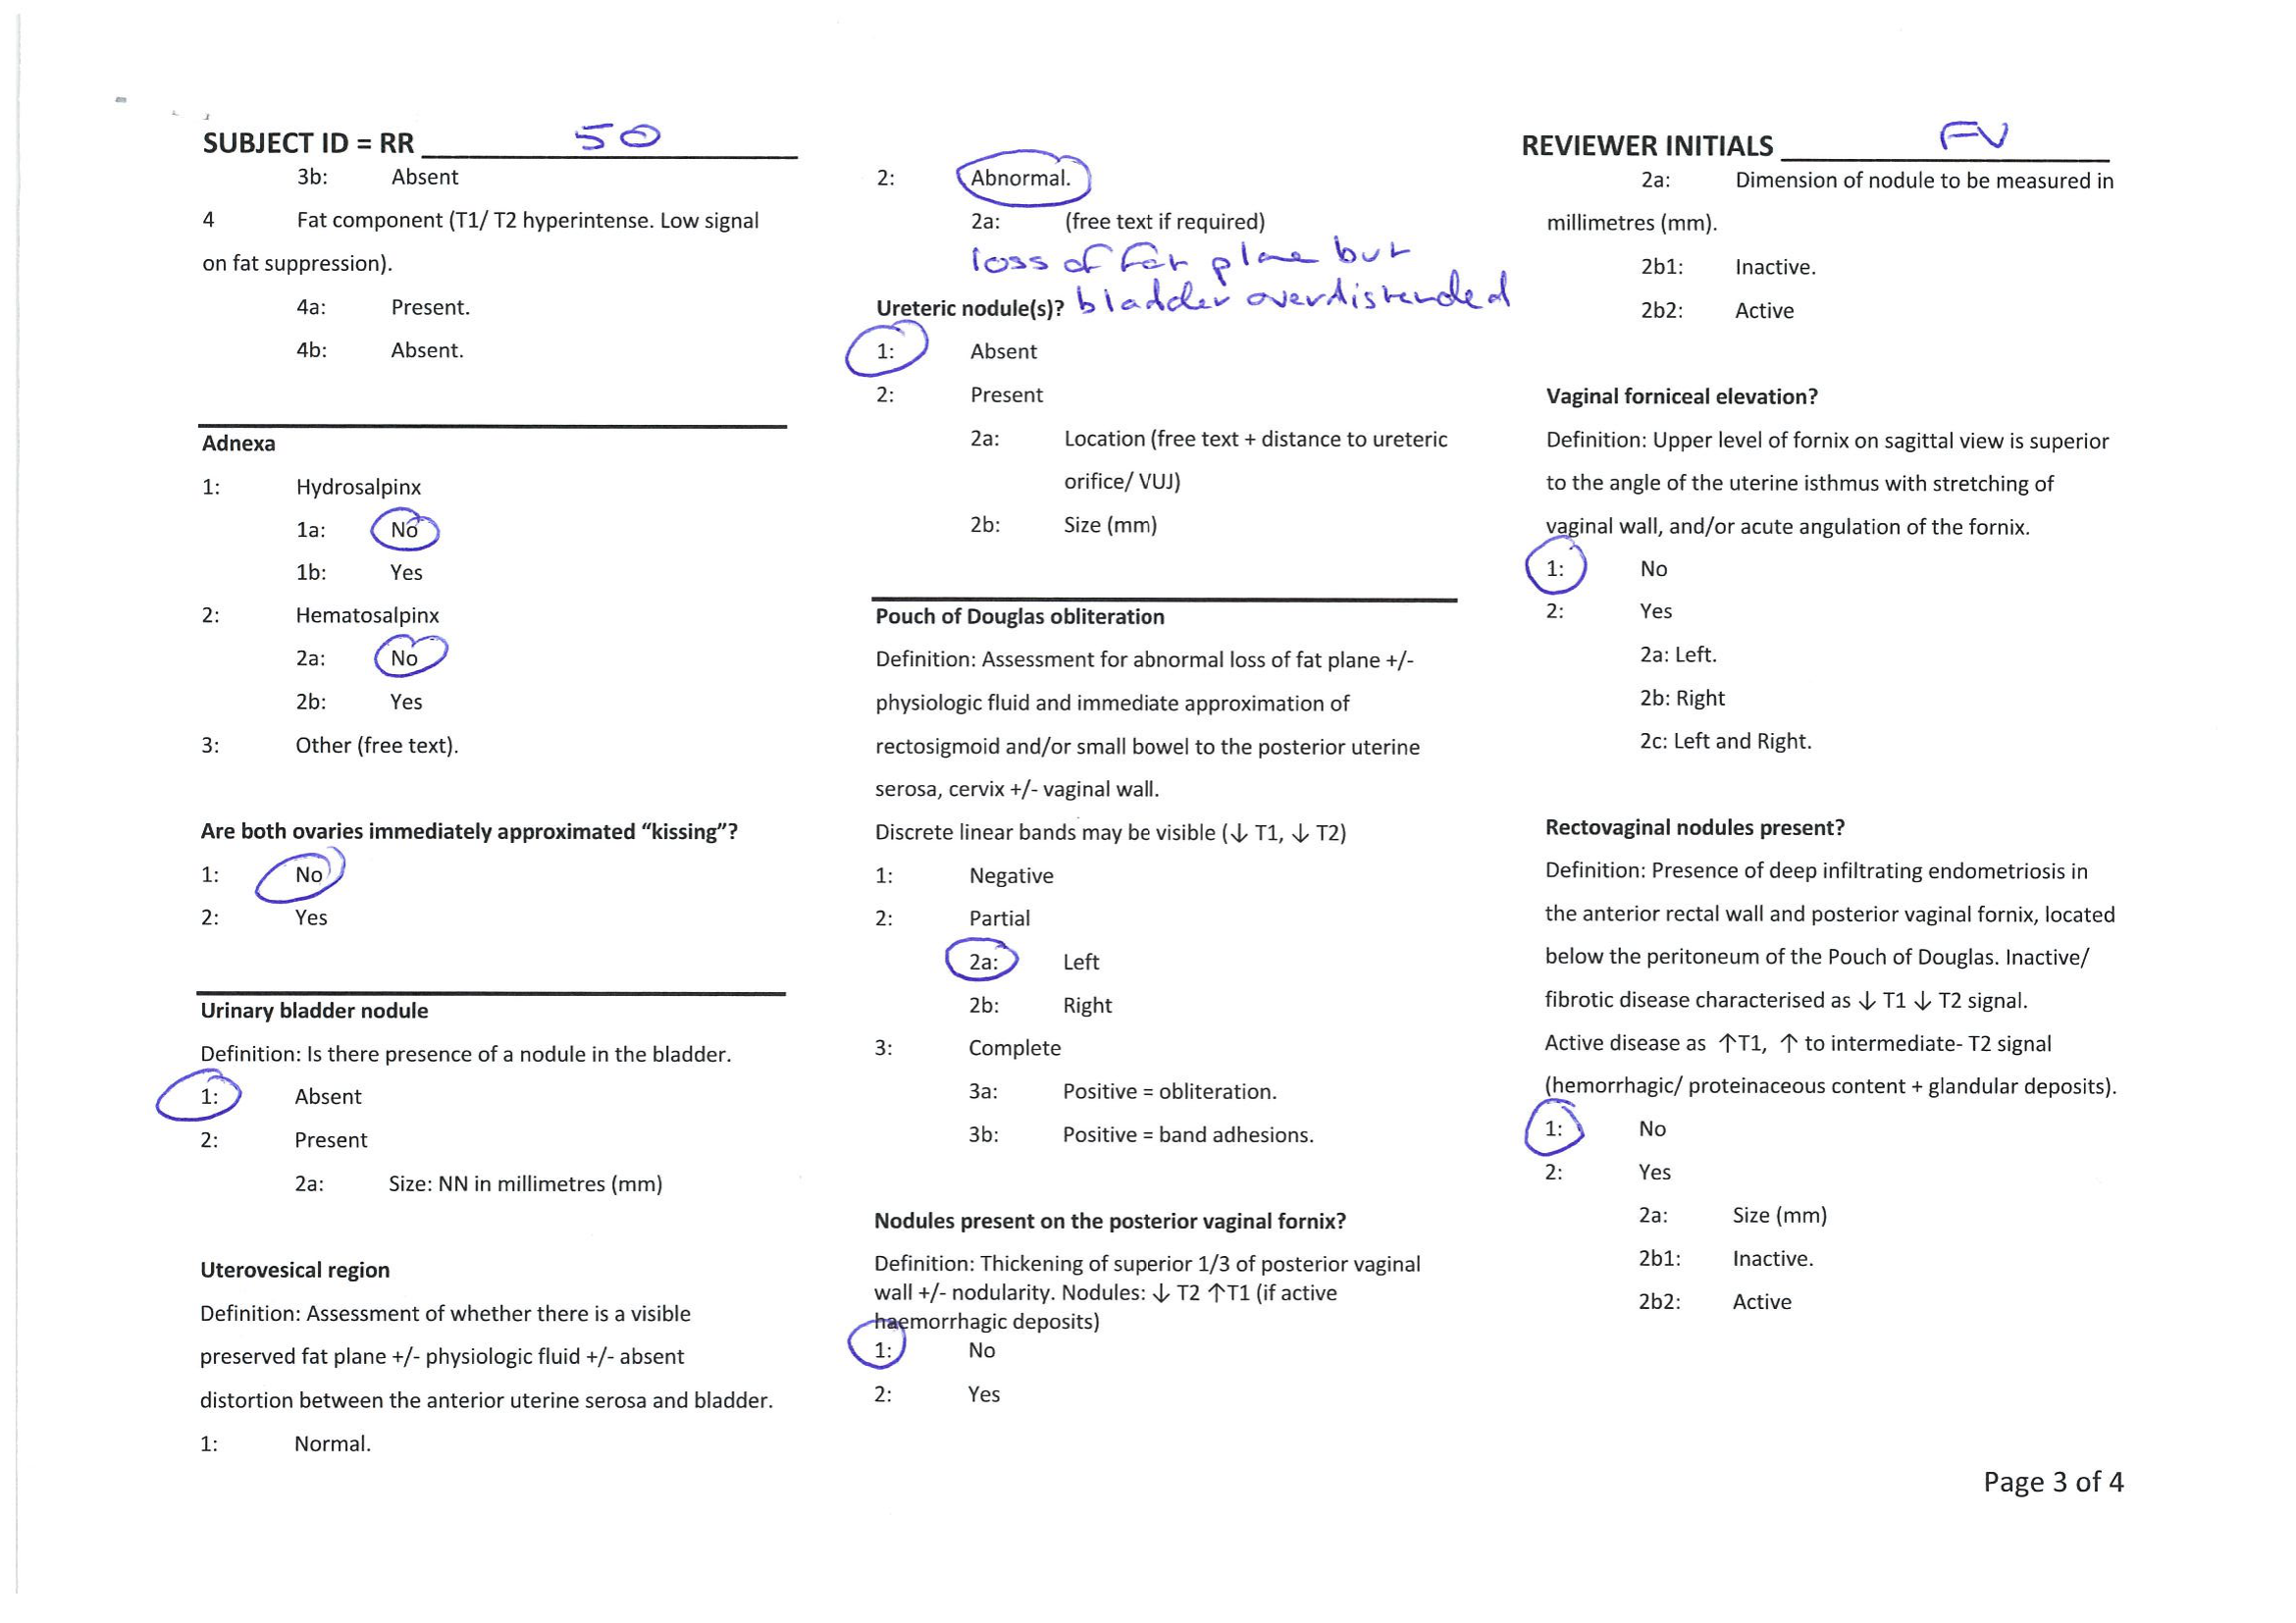 SUBJECT ID = RR 50
3b: Absent
4 Fat component (T1/ T2 hyperintense. Low signal
on fat suppression).
4a: Present.
4b: Absent.
Adnexa
1: Hydrosalpinx
1a: No
1b: Yes
2: Hematosalpinx
2a: No
2b: Yes
3: Other (free text).
Are both ovaries immediately approximated “kissing”?
1: No
2: Yes
Urinary bladder nodule
Definition: Is there presence of a nodule in the bladder.
1: Absent
2: Present
2a: Size: NN in millimetres (mm)
Uterovesical region
Definition: Assessment of whether there is a visible
preserved fat plane +/- physiologic fluid +/- absent
distortion between the anterior uterine serosa and bladder.
1: Normal.
2: Abnormal.
2a: (free text if required)
loss of fat plane but
bladder overdistended
Ureteric nodule(s)?
1: Absent
2: Present
2a: Location (free text + distance to ureteric
orifice/ VUJ)
2b: Size (mm)
Pouch of Douglas obliteration
Definition: Assessment for abnormal loss of fat plane +/-
physiologic fluid and immediate approximation of
rectosigmoid and/or small bowel to the posterior uterine
serosa, cervix +/- vaginal wall.
Discrete linear bands may be visible (↓ T1, ↓ T2)
1: Negative
2: Partial
2a: Left
2b: Right
3: Complete
3a: Positive = obliteration.
3b: Positive = band adhesions.
Nodules present on the posterior vaginal fornix?
Definition: Thickening of superior 1/3 of posterior vaginal
wall +/- nodularity. Nodules: ↓ T2 ↑T1 (if active
haemorrhagic deposits)
1: No
2: Yes
REVIEWER INITIALS FV
2a: Dimension of nodule to be measured in
millimetres (mm).
2b1: Inactive.
2b2: Active
Vaginal forniceal elevation?
Definition: Upper level of fornix on sagittal view is superior
to the angle of the uterine isthmus with stretching of
vaginal wall, and/or acute angulation of the fornix.
1: No
2: Yes
2a: Left.
2b: Right
2c: Left and Right.
Rectovaginal nodules present?
Definition: Presence of deep infiltrating endometriosis in
the anterior rectal wall and posterior vaginal fornix, located
below the peritoneum of the Pouch of Douglas. Inactive/
fibrotic disease characterised as ↓ T1 ↓ T2 signal.
Active disease as ↑T1, ↑ to intermediate- T2 signal
(hemorrhagic/ proteinaceous content + glandular deposits).
1: No
2: Yes
2a: Size (mm)
2b1: Inactive.
2b2: Active
Page 3 of 4